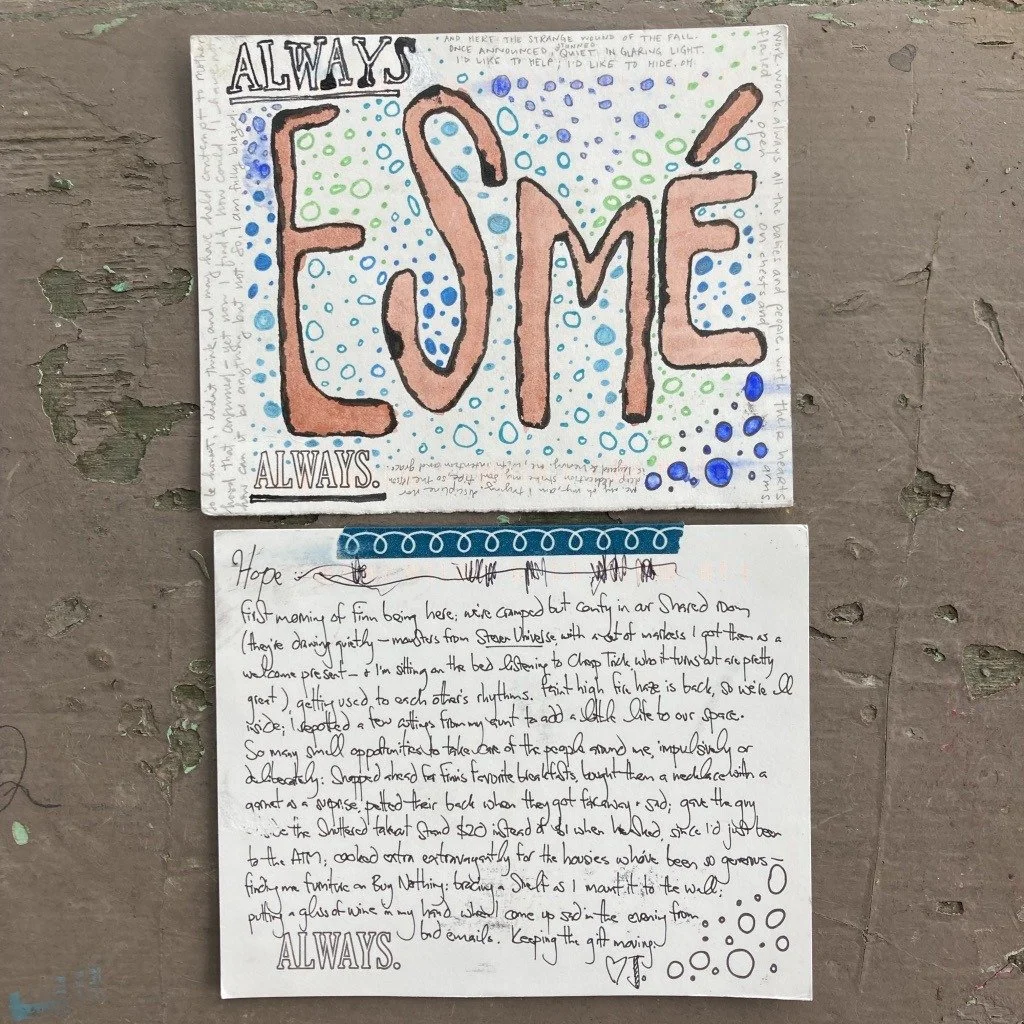 ALWAYS
· AND HERE THE STRANGE WOUND OF THE FALL.
ONCE ANNOUNCED, STUNNED QUIET IN GLARING LIGHT.
I'D LIKE TO HELP; I'D LIKE TO HIDE. OH
work, work, always all the babies and people with their hearts
flared open on chests and arms
ESMÉ
ALWAYS.
me, oh my, am I trying;
discipline nor
deep dedication strike my soul
is beyond & nearing me, with intention and grace.
to be honest, I didn't think, and may have held contempt to mother
hood that consumes - yet now I hold, how could I, have
how can it be anything but not so? I am fully blazed
Hope
First morning of Finn being here; we're cramped but comfy in our shared room
(they're drawing quietly — monsters from Steven Universe, with a set of markers I got them as a
welcome present — & I'm sitting on the bed listening to Cheap Trick who it turns out are pretty
great), getting used to each other's rhythms. Faint high fire haze is back, so we're all
inside; I repotted a few cuttings from my aunt to add a little life to our space.
So many small opportunities to take care of the people around me, impulsively or
deliberately: Shopped ahead for Finn's favorite breakfasts, bought them a necklace with a
garnet as a surprise, patted their back when they got faraway + sad; gave the guy
the shuttered takeout stand $20 instead of $1 when he asked, since I'd just been
to the ATM; cooked extra extravagantly for the housies who've been so generous—
finding me furniture on Buy Nothing; bracing a shelf as I mount it to the wall;
putting a glass of wine in my hand when I come up sad in the evening from
bad emails. Keeping the gift moving.
ALWAYS.
♡J.